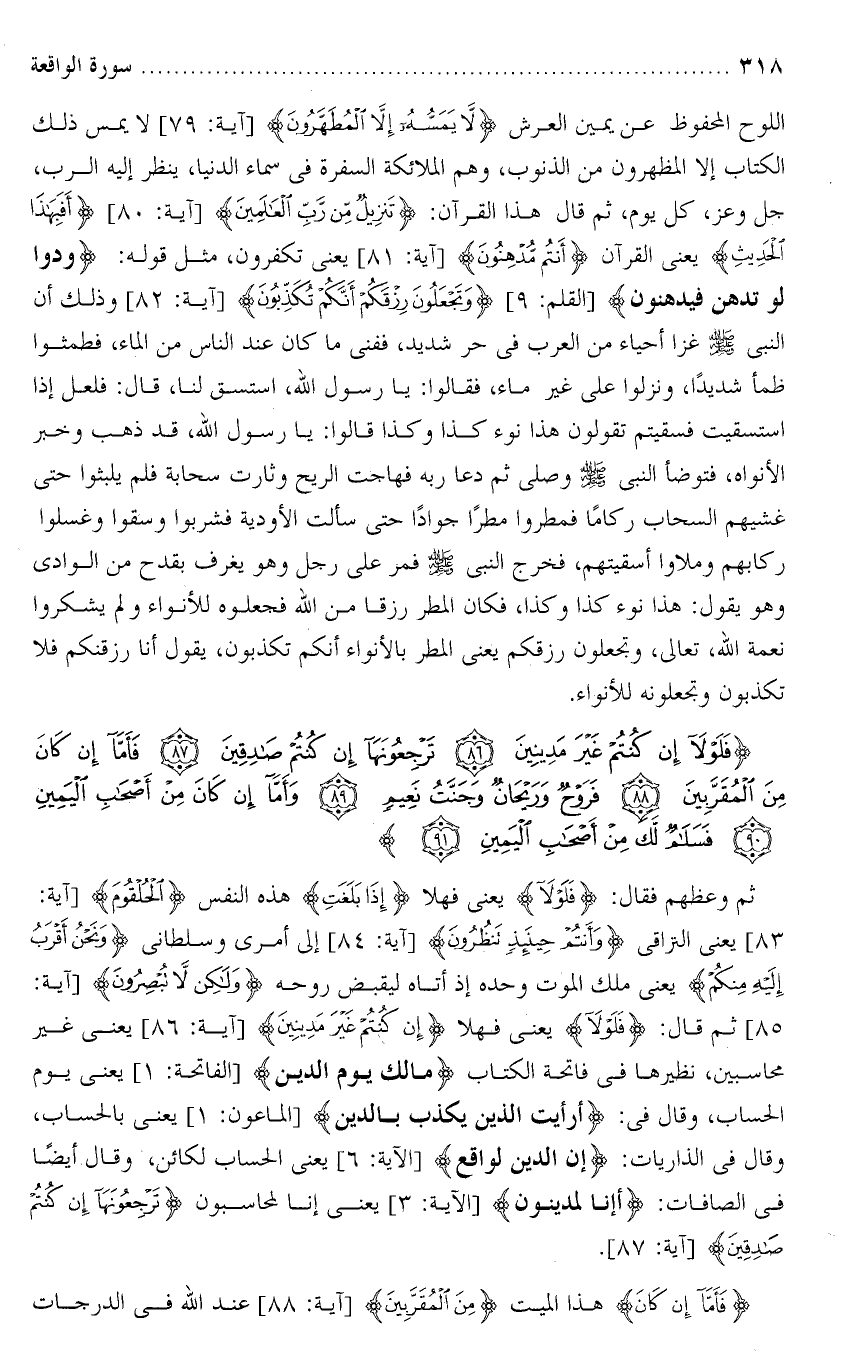 ٣١٨ ........................................................................ سورة الواقعة
اللوح المحفوظ عن يمين العرش ﴿لَّا يَمَسُّهُۥٓ إِلَّا ٱلۡمُطَهَّرُونَ﴾ [آية: ٧٩] لا يمس ذلك
الكتاب إلا المظهرون من الذنوب، وهم الملائكة السفرة فى سماء الدنيا، ينظر إليه الرب،
جل وعز، كل يوم، ثم قال هذا القرآن: ﴿تَنزِيلٌ مِّن رَّبِّ ٱلۡعَٰلَمِينَ﴾ [آية: ٨٠] ﴿أَفَبِهَٰذَا
ٱلۡحَدِيثِ﴾ يعنى القرآن ﴿أَنتُم مُّدۡهِنُونَ﴾ [آية: ٨١] يعنى تكفرون، مثل قوله: ﴿ودوا
لو تدهن فيدهنون﴾ [القلم: ٩] ﴿وَتَجۡعَلُونَ رِزۡقَكُمۡ أَنَّكُمۡ تُكَذِّبُونَ﴾ [آية: ٨٢] وذلك أن
النبى ﷺ غزا أحياء من العرب فى حر شديد، ففنى ما كان عند الناس من الماء، فظمئوا
ظمأ شديدًا، ونزلوا على غير ماء، فقالوا: يا رسول الله، استسق لنا، قال: فلعل إذا
استسقيت فسقيتم تقولون هذا نوء كذا وكذا قالوا: يا رسول الله، قد ذهب وخبر
الأنواه، فتوضأ النبى ﷺ وصلى ثم دعا ربه فهاجت الريح وثارت سحابة فلم يلبثوا حتى
غشيهم السحاب ركامًا فمطروا مطرًا جوادًا حتى سألت الأودية فشربوا وسقوا وغسلوا
ركابهم وملاوا أسقيتهم، فخرج النبى ﷺ فمر على رجل وهو يغرف بقدح من الوادى
وهو يقول: هذا نوء كذا وكذا، فكان المطر رزقا من الله فجعلوه للأنواء ولم يشكروا
نعمة الله، تعالى، وتجعلون رزقكم يعنى المطر بالأنواء أنكم تكذبون، يقول أنا رزقنكم فلا
تكذبون وتجعلونه للأنواء.
﴿فَلَوۡلَآ إِن كُنتُمۡ غَيۡرَ مَدِينِينَ ٨٦ تَرۡجِعُونَهَآ إِن كُنتُمۡ صَٰدِقِينَ ٨٧ فَأَمَّآ إِن كَانَ
مِنَ ٱلۡمُقَرَّبِينَ ٨٨ فَرَوۡحٌ وَرَيۡحَانٌ وَجَنَّتُ نَعِيمٍ ٨٩ وَأَمَّآ إِن كَانَ مِنۡ أَصۡحَٰبِ ٱلۡيَمِينِ
٩٠ فَسَلَٰمٌ لَّكَ مِنۡ أَصۡحَٰبِ ٱلۡيَمِينِ ٩١ ﴾
ثم وعظهم فقال: ﴿فَلَوۡلَآ﴾ يعنى فهلا ﴿إِذَا بَلَغَتِ﴾ هذه النفس ﴿ٱلۡحُلۡقُومَ﴾ [آية:
٨٣] يعنى التراقى ﴿وَأَنتُمۡ حِينَئِذٍ تَنظُرُونَ﴾ [آية: ٨٤] إلى أمرى وسلطانى ﴿وَنَحۡنُ أَقۡرَبُ
إِلَيۡهِ مِنكُمۡ﴾ يعنى ملك الموت وحده إذ أتاه ليقبض روحه ﴿وَلَٰكِن لَّا تُبۡصِرُونَ﴾ [آية:
٨٥] ثم قال: ﴿فَلَوۡلَآ﴾ يعنى فهلا ﴿إِن كُنتُمۡ غَيۡرَ مَدِينِينَ﴾ [آية: ٨٦] يعنى غير
محاسبين، نظيرها فى فاتحة الكتاب ﴿مالك يوم الدين﴾ [الفاتحة: ١] يعنى يوم
الحساب، وقال فى: ﴿أرأيت الذين يكذب بالدين﴾ [الماعون: ١] يعنى بالحساب،
وقال فى الذاريات: ﴿إن الدين لواقع﴾ [الآية: ٦] يعنى الحساب لكائن، وقال أيضًا
فى الصافات: ﴿أإنا لمدينون﴾ [الآية: ٣] يعنى إنا لمحاسبون ﴿تَرۡجِعُونَهَآ إِن كُنتُمۡ
صَٰدِقِينَ﴾ [آية: ٨٧].
﴿فَأَمَّآ إِن كَانَ﴾ هذا الميت ﴿مِنَ ٱلۡمُقَرَّبِينَ﴾ [آية: ٨٨] عند الله فى الدرجات